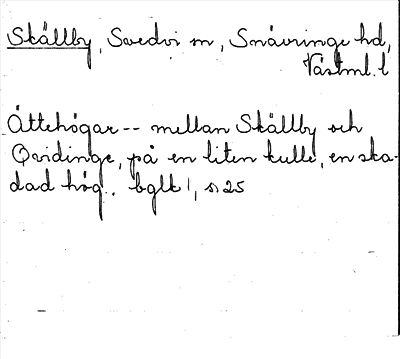 Skållby, Svedvi sn, Snävringe hd,
Västml. l
Ättehögar -- mellan Skållby och
Qvidinge, på en liten kulle, en ska-
dad hög. bglk 1, s 25